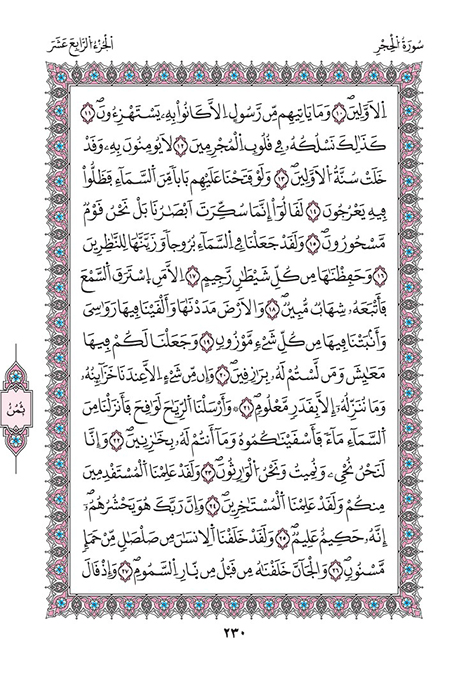 سُورَةُ الْحِجْرِ
الْجُزْءُ الرَّابِعَ عَشَرَ
اَلَاوَّلِينَۖ ١٠ وَمَا يَاتِيهِم مِّن رَّسُولٍ اِلَّا كَانُواْ بِهِۦ يَسْتَهْزِءُونَۖ ١١
كَذَٰلِكَ نَسْلُكُهُۥ فِي قُلُوبِ الْمُجْرِمِينَ ١٢ لَا يُومِنُونَ بِهِۦ وَقَدْ
خَلَتْ سُنَّةُ الَاوَّلِينَۖ ١٣ وَلَوْ فَتَحْنَا عَلَيْهِم بَاباً مِّنَ السَّمَآءِ فَظَلُّواْ
فِيهِ يَعْرُجُونَ ١٤ لَقَالُوٓاْ إِنَّمَا سُكِّرَتَ اَبْصَٰرُنَا بَلْ نَحْنُ قَوْمٌ
مَّسْحُورُونَۖ ١٥ وَلَقَدْ جَعَلْنَا فِي السَّمَآءِ بُرُوجاً وَزَيَّنَّٰهَا لِلنَّٰظِرِينَ
١٦ وَحَفِظْنَٰهَا مِن كُلِّ شَيْطَٰنٍ رَّجِيمٍ ١٧ اِلَّا مَنِ اِسْتَرَقَ السَّمْعَ
فَأَتْبَعَهُۥ شِهَابٌ مُّبِينٌۖ ١٨ وَالَارْضَ مَدَدْنَٰهَا وَأَلْقَيْنَا فِيهَا رَوَٰسِيَ
وَأَنۢبَتْنَا فِيهَا مِن كُلِّ شَيْءٍ مَّوْزُونٍۖ ١٩ وَجَعَلْنَا لَكُمْ فِيهَا
مَعَٰيِشَ وَمَن لَّسْتُمْ لَهُۥ بِرَٰزِقِينَۖ ٢٠ وَإِن مِّن شَيْءٍ اِلَّا عِندَنَا خَزَآئِنُهُۥ
وَمَا نُنَزِّلُهُۥٓ إِلَّا بِقَدَرٍ مَّعْلُومٍۖ ٢١ وَأَرْسَلْنَا الرِّيَٰحَ لَوَٰقِحَ فَأَنزَلْنَا مِنَ
السَّمَآءِ مَآءً فَأَسْقَيْنَٰكُمُوهُ وَمَآ أَنتُمْ لَهُۥ بِخَٰزِنِينَۖ ٢٢ وَإِنَّا
لَنَحْنُ نُحْيِۦ وَنُمِيتُ وَنَحْنُ الْوَٰرِثُونَۖ ٢٣ وَلَقَدْ عَلِمْنَا الْمُسْتَقْدِمِينَ
مِنكُمْ وَلَقَدْ عَلِمْنَا الْمُسْتَٰخِرِينَۖ ٢٤ وَإِنَّ رَبَّكَ هُوَ يَحْشُرُهُمُۥٓۖ
إِنَّهُۥ حَكِيمٌ عَلِيمٌۖ ٢٥ وَلَقَدْ خَلَقْنَا الِانسَٰنَ مِن صَلْصَٰلٍ مِّنْ حَمَإٍ
مَّسْنُونٍۖ ٢٦ وَالْجَآنَّ خَلَقْنَٰهُ مِن قَبْلُ مِن نّارِ السَّمُومِۖ ٢٧ وَإِذْ قَالَ
ثُمُنُ
٢٣٠